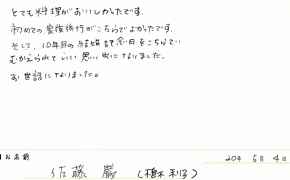 とても料理がおいしかったです。
初めての家族旅行がこちらでよかったです。
そして、10年目の結婚記念日をこちらで
むかえられていい思い出になりました。
お世話になりました。
お名前
佐藤 巌
20年 6月 4日